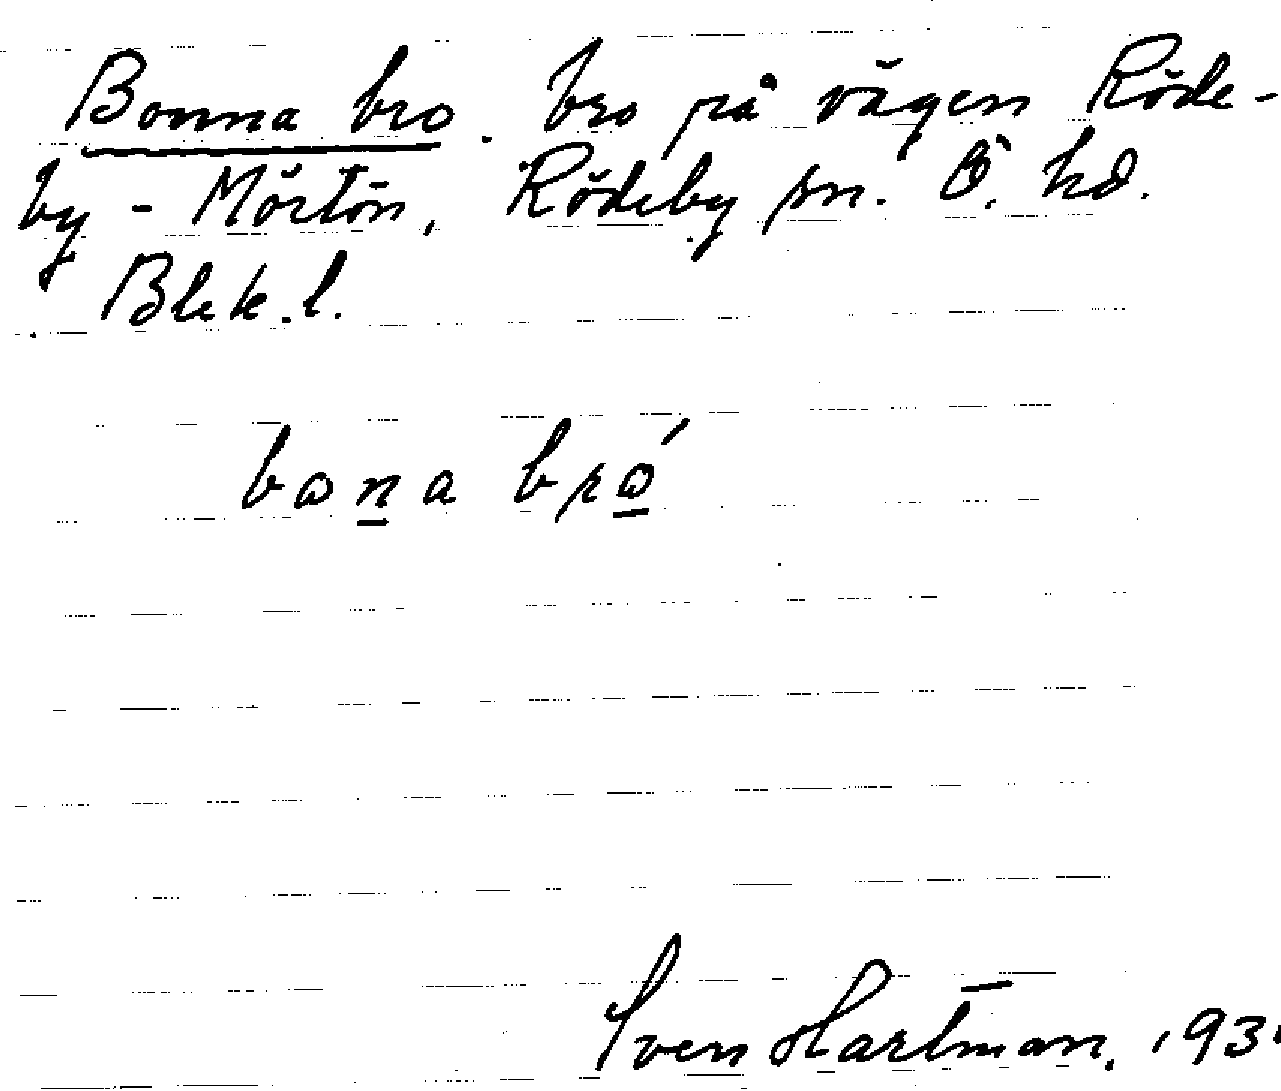 Bonna bro. bro på vägen Röde-
by - Mörtön, Rödeby sn. Ö. hd.
Blek. l.
bona bró
Sven Hartman. 193